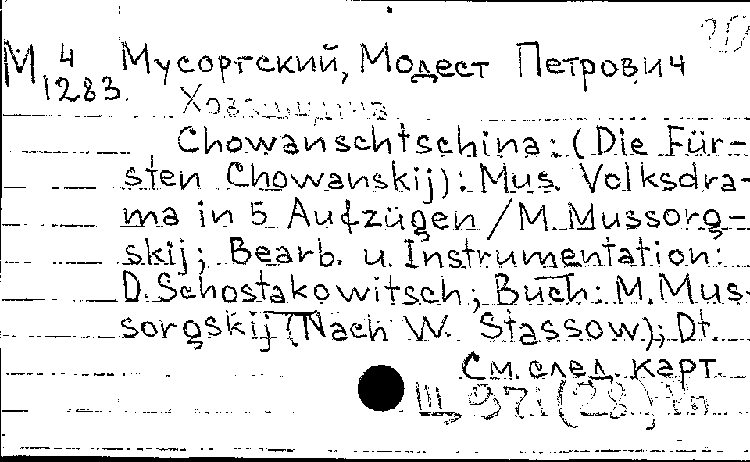 М 4
1283
Мусоргский, Модест Петрович
Хованщина
Chowanschtschina: (Die Für-
sten Chowanskij): Mus. Volksdra-
ma in 5 Aufzügen / M. Mussorg-
skij; Bearb. u. Instrumentation:
D. Schostakowitsch; Buch: M. Mus-
sorgskij (Nach W. Stassow); Dt.
См. след. карт.